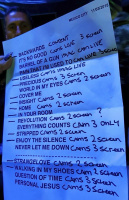 BACKWARDS CAMS 3 SCREEN
IT'S NO GOOD CAMS LIVE
BARREL OF A GUN
PAIN THAT I'M USED TO CAMS 3
USELESS CAMS
PRECIOUS CAMS 3 SCREEN
WORLD IN MY EYES CAMS 2 SCREEN
COVER ME
INSIGHT CAMS 2 SCREEN
HOME CAMS 2 SCREEN
IN YOUR ROOM
REVOLUTION CAMS 2 SCREEN ?
EVERYTHING COUNTS CAM 3 ONLY
STRIPPED CAMS 2 SCREEN
ENJOY THE SILENCE CAMS 2 SCREEN
NEVER LET ME DOWN CAMS 3 SCREEN
STRANGELOVE CAMS 2 SCREEN
WALKING IN MY SHOES CAMS 1 SCREEN
QUESTION OF TIME CAMS 3 SCREEN
PERSONAL JESUS CAMS 3 SCREEN